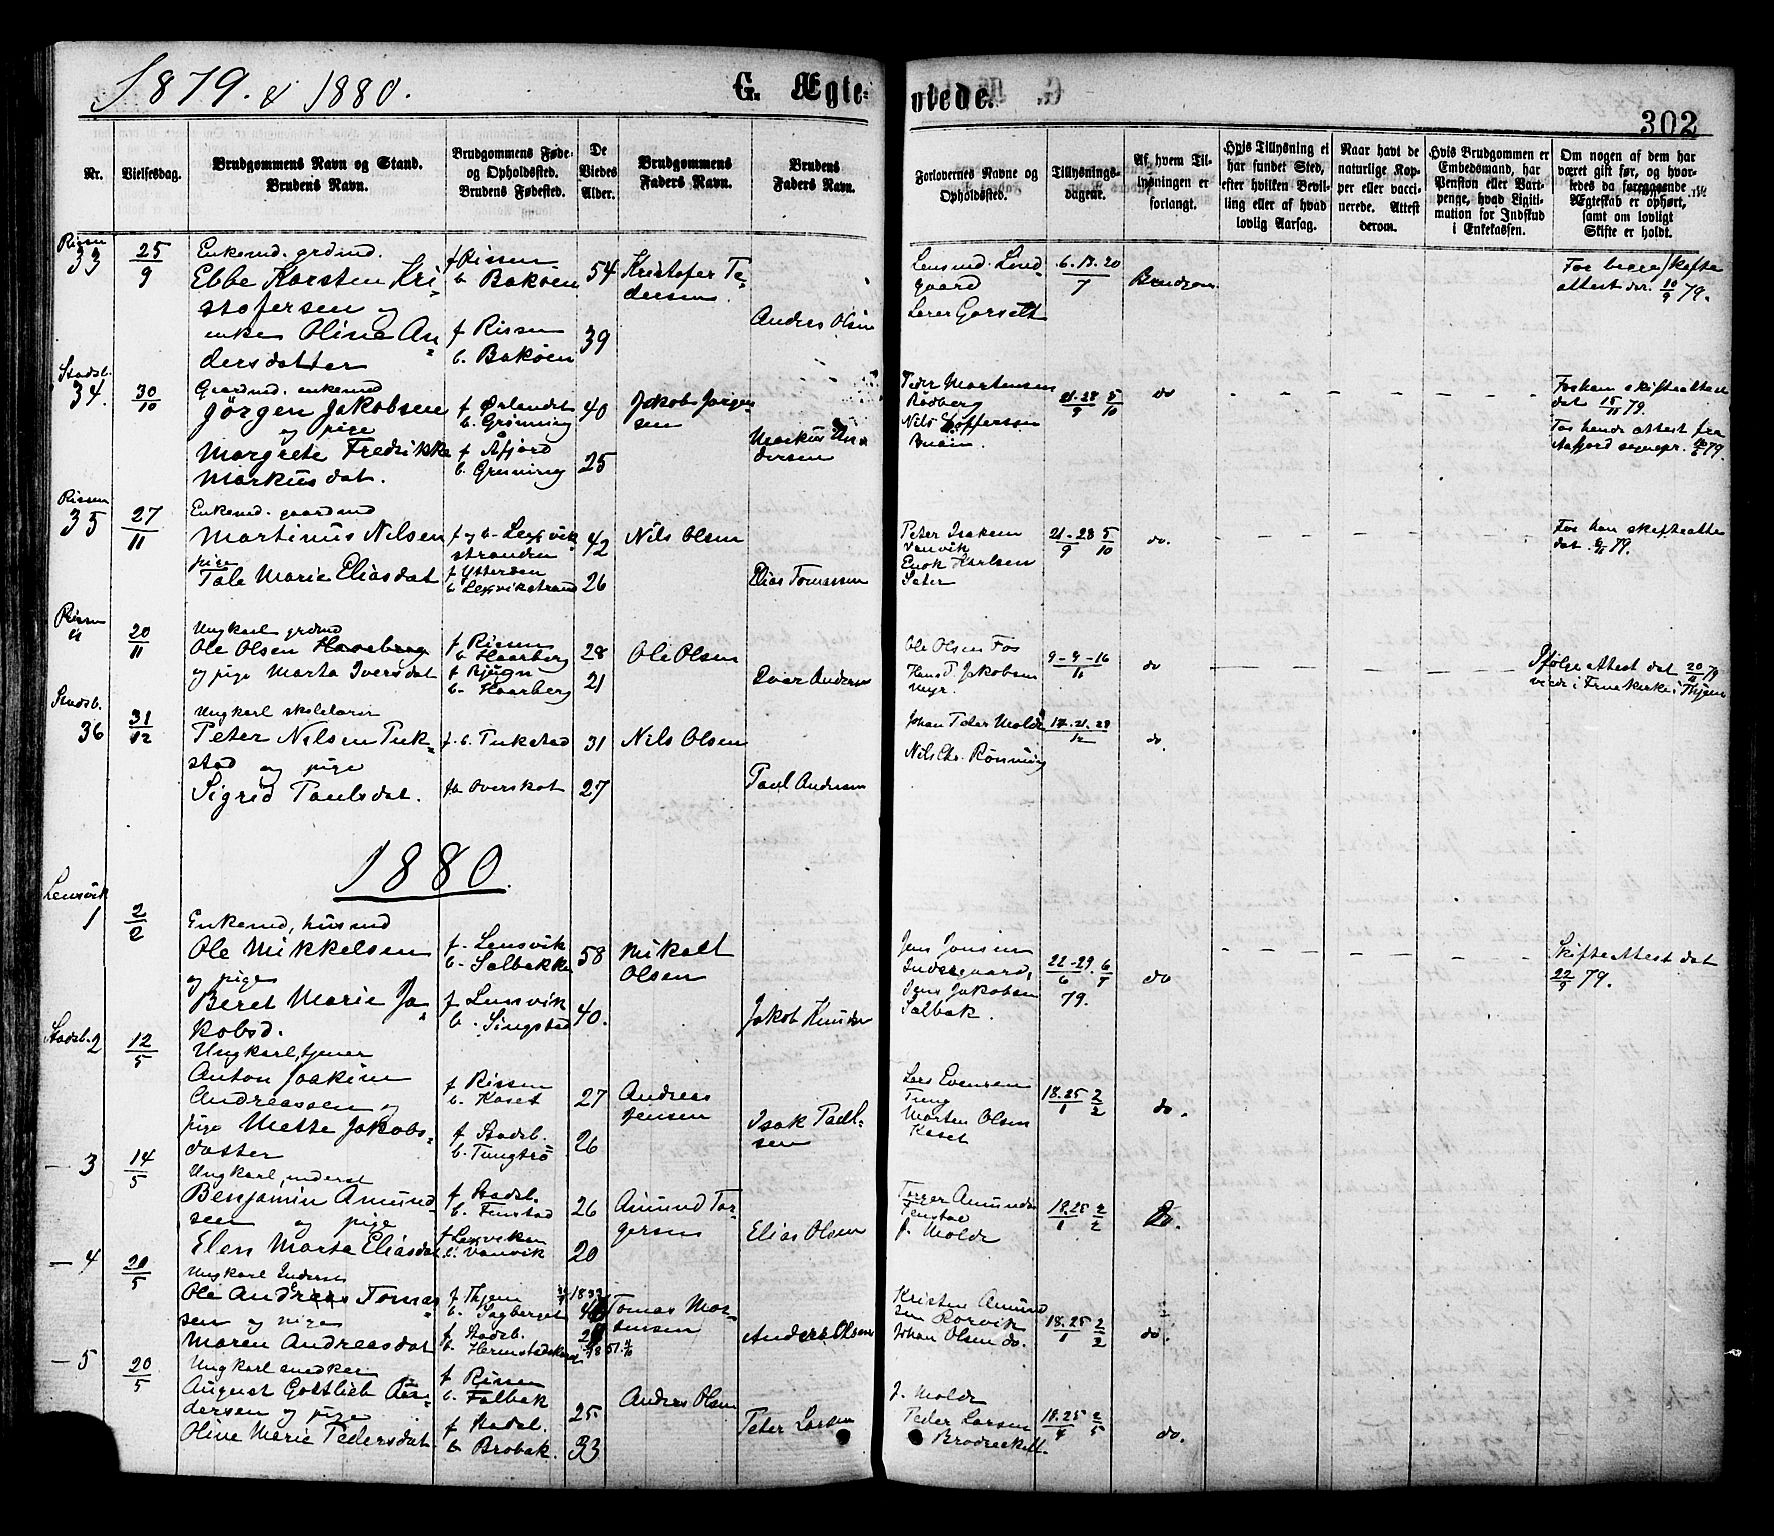 1879. & 1880.
G. Ægte-
viede.
302
Nr.
Vielsesdag.
Brudgommens Navn og Stand.
Brudens Navn.
Brudgommens Føde-
og Opholdssted.
Brudens Fødested.
De
Viedes
Alder.
Brudgommens
Faders Navn.
Brudens
Faders Navn.
Forlovernes Navne og
Opholdssted.
Tillysnings-
dagene.
Af hvem Til-
lysningen er
forlangt.
Hvis Tillysning ei
har fundet Sted,
efter hvilken Bevil-
ling eller af hvad
lovlig Aarsag.
Naar havt de
naturlige Kop-
per eller vacci-
nerede. Attest
derom.
Hvis Brudgommen er
Embedsmand, har
Pension eller Vart-
penge, hvad Ligiti-
mation for Indskud
i Enkekassen.
Om nogen af dem har
været gift før, og hvor-
ledes da foregaaende
Ægteskab er ophørt,
samt om lovligt
Skifte er holdt.
Rissen
33
25/9
Enkemd. grdmd.
Ebbe Karsten Kri-
stofersen og
enke Oline An-
dersdatter
f Rissen
b. Bakøen
f Rissen
b. Bakøen
54
39
Kristofer Pe-
dersen
Anders Olsen
Lensmd. Lind-
gaard
6.13.20/7
Brudgom
attest der. 10/9 79.
Stadsb.
34.
30/10
Gaardmd. enkemd
Jørgen Jakobsen
og pige
Margrete Fredrikke
Markusdat.
f Ørlandet
b. Grønning
f Åfjord
b. Grønning
40
25
Jakob Jørgen-
sen
Markus An-
dersen
Peder Mortensen
Rødberg
21-28/9 5/10
do
Forhen skifteattest
dat 79.
Åafjord sognepr. 79.
Rissen
35
27/11
Enkemd. gaardmd
Martinus Nilsen
pige
Tale Marie Eliasdat
f og b. Lexvik
stranden
f Ytterøen
b. Lexvikstrand
42
26
Nils Olsen
Elias Tomassen
Peter Isaksen
Vanvik
Enok Karlsen
Sæter
21-28/9 5/10
do.
dat 79.
Rissen
20/11
Ungkarl grdmd
Ole Olsen Haarberg
og pige Marta Iversdat
f Rissen
b. Haarberg
f Bjugn
b. Haarberg
28
21
Ole Olsen
Iver Anders
Ole Olsen Fos
Hans P. Jakobsen
Myr.
9-9-16/11
do
Ifølge Attest dat 20/11 79
viede i Frue kirke i Thjem
Stadsb.
36
31/12
Ungkarl skolelærer
Peter Nilsen Puk-
stad og pige
Sigrid Paulsdat.
f. b. Pukstad
fb Overskot
31
27
Nils Olsen
Paul Andersen
Johan Peter Molde
Nils Chr. Rønning
14.21.28/12
do.
1880
Lensvik
1
2/2
Enkemd, husmd
Ole Mikkelsen
og pige
Beret Marie Ja-
kobsd.
f. Lensvik
b. Solbakk
f Lensvik
b. Singstad
58
40.
Mikalt
Olsen
Jakob Knuds
Jens Jonsen
Indergaard,
Jens Jakobsen
Solbak.
22-29/6 6/7
79.
do
Skifteattest dat
22/9 79.
Stadsb. 2
12/5
Ungkarl, tjener
Anton Joakim
Andreassen og
pige Mette Jakobs-
datter
f Rissen
b. Kaset
f Stadsb.
b. Tungtrø
27
26
Andreas
Jensen
Isak Paul-
sen
Lars Evensen
Tung
Morten Olsen
Kaset
18.25/1 2/2
do.
- 3
14/5
Ungkarl, inderst
Benjamin Amund-
sen og pige
Elen Marta Eliasdat
f Stadsb.
b. Fenstad
f Lexviken
b. Vanvik
26
20
Amund Tor-
gersen
Elias Olsen
Torger Amunds
Fenstad
J. Molde
18.25/1 2/2
Do.
- 4
20/5
Ungkarl Inderst
Ole Andreas Tomas-
sen og pige
Maren Andreasdat
f. Thjem
b. Sagberget
f. Stadsb.
Tomas Mor-
tensen
Anders Olsen
Kristen Amund
sen Rorvik
Johan Olsen do.
18.25/1 2/2
do.
- 5
20/5
Ungkarl snedker
August Gottlieb An-
dersen og pige
Oline Marie Pedersdat
f Rissen
b. Falbak
f Stadsb.
b Brobak.
25
33
Anders Olsen
Peter Larsen
J. Molde
Peder Larsen
18.25/4 2/5
do.